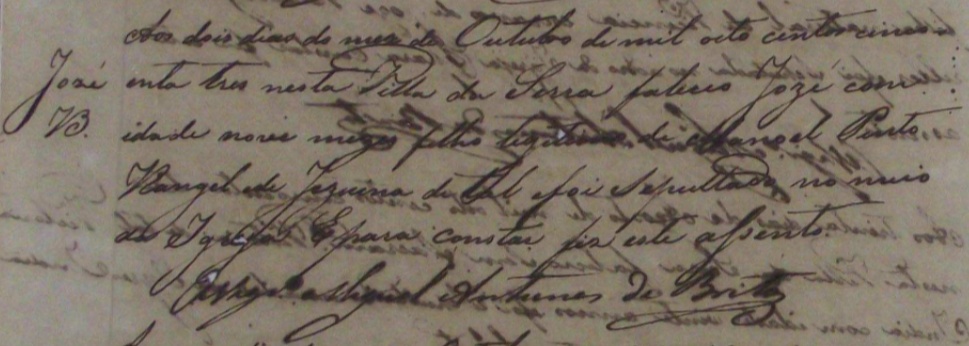 Aos dois dias do mez de Outubro de mil oito centos cinco
Jozé enta tres nesta Villa da Serra faleceo Jozé com
B. idade nove mezes filho legitimo de Manoel Pinto
Rangel de foi sepultado no meio
da Igreja E para constar fiz este assento.
Miguel Antunes de Brito